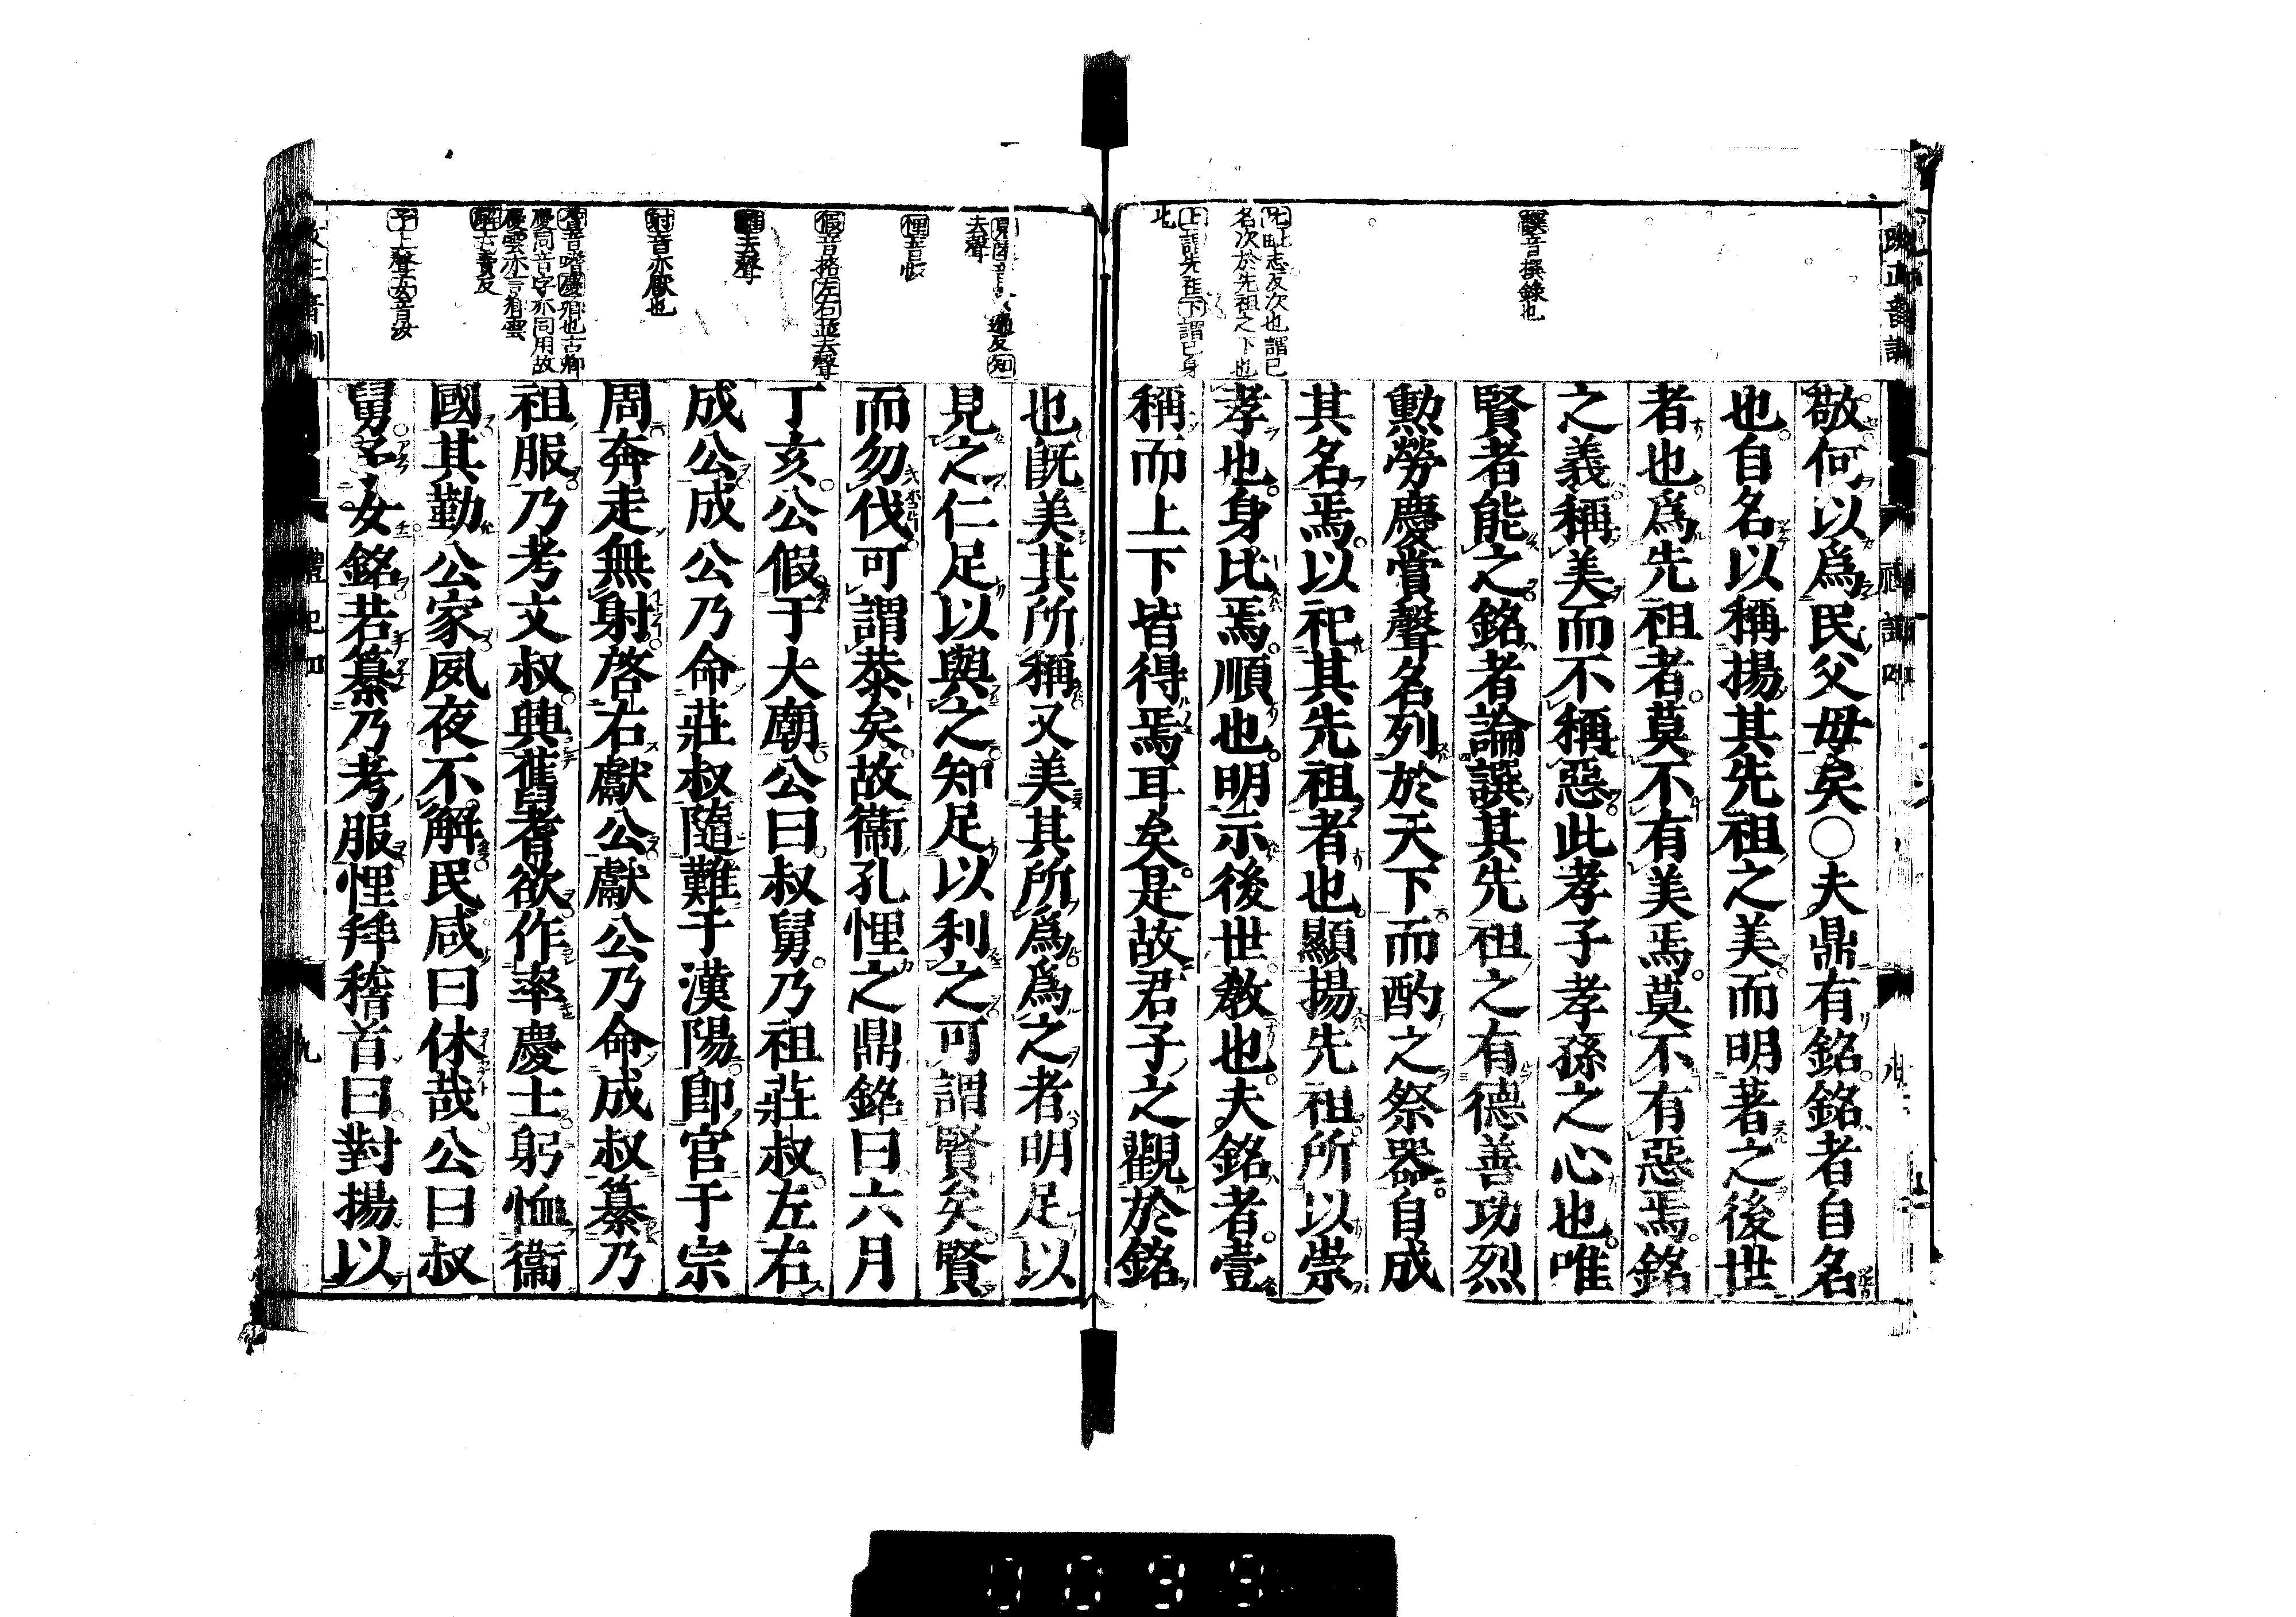 譔音撰錄也
比毗志反次也謂已
名次於先祖之下也
上謂先祖下謂已身
敬何以爲民父母矣○夫鼎有銘銘者自名
也自名以稱揚其先祖之美而明著之後世
者也爲先祖者莫不有美焉莫不有惡焉銘
之義稱美而不稱惡此孝子孝孫之心也唯
賢者能之銘者論譔其先祖之有德善功烈
勲勞慶賞聲名列於天下而酌之祭器自成
其名焉以祀其先祖者也顯揚先祖所以崇
孝也身比焉順也明示後世敎也夫銘者壹
稱而上下皆得焉耳矣是故君子之觀於銘
去聲
悝音恢
假音格左右並去聲
難去聲
射音亦厭也
慶同音字亦同用故
慶雲亦言卿雲
予上聲女音汝
也旣美其所稱又美其所爲爲之者明足以
見之仁足以與之知足以利之可謂賢矣賢
而勿伐可謂恭矣故衞孔悝之鼎銘曰六月
丁亥公假于大廟公曰叔舅乃祖莊叔左右
成公成公乃命莊叔隨難于漢陽卽宮于宗
周奔走無射啓右獻公獻公乃命成叔纂乃
祖服乃考文叔興舊耆欲作率慶士躬恤衞
國其勤公家夙夜不解民咸曰休哉公曰叔
舅予女銘若纂乃考服悝拜稽首曰對揚以
禮記四
九
0099